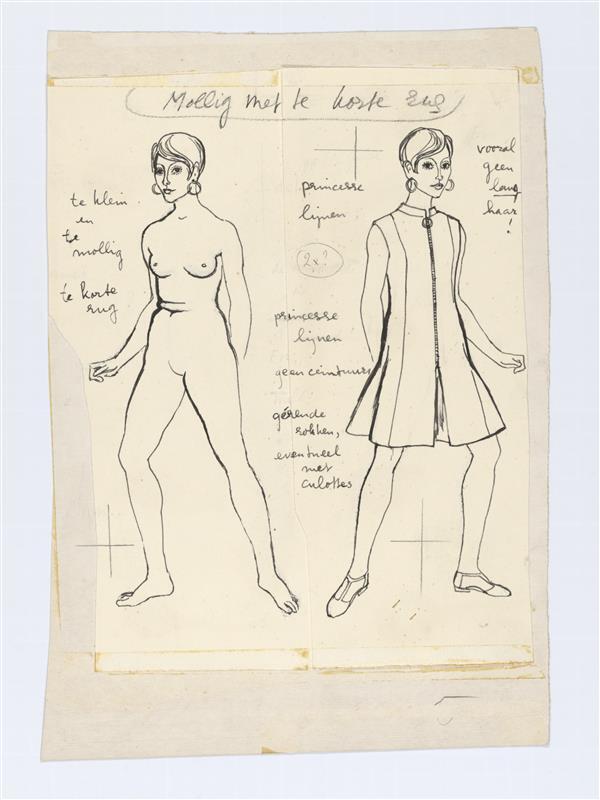 Mollig met te korte rug
te klein
en
te
mollig
te korte
rug
princesse
lijnen
2x?
princesse
lijnen
geen ceintuurs
gérende
rokken,
eventueel
met
culottes
vooral
geen
lang
haar
!